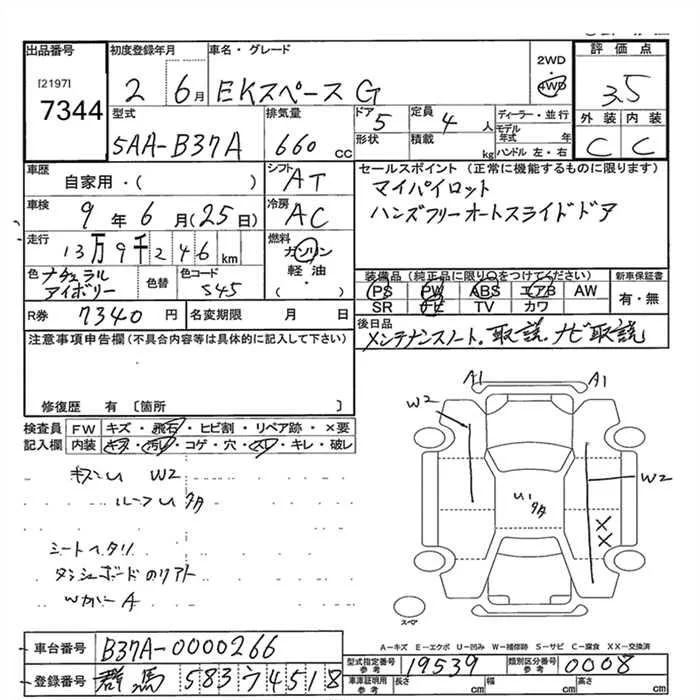 出品番号
[2197]
7344
初度登録年月
2 6月
車名・グレード
EKスペースG
2WD
・
4WD
評価点
3.5
外装 内装
C C
型式
5AA-B37A
排気量
660 CC
ドア 5
形状
定員 4 人
積載 kg
ディーラー・並行
モデル年式 年
ハンドル 左・右
車歴
自家用・( )
シフト AT
車検
9年6月(25日)
冷房 AC
走行
13万9千246km
燃料
ガソリン
軽油・
( )
色 ナチュラルアイボリー
色替
色コード S45
R券 7340円
名変期限 月 日
セールスポイント(正常に機能するものに限ります)
マイパイロット
ハンズフリーオートスライドドア
装備品(純正品に限り○をつけてください)
PS PW ABS エアB AW
SR ナビ TV カワ
新車保証書
有・無
後日品
メンテナンスノート.取説.ナビ取説
注意事項申告欄(不具合内容等は具体的に記入して下さい)
修復歴 有 〔箇所 〕
検査員 FW キズ・飛石・ヒビ割・リペア跡・×要
記入欄 内装 キズ・汚れ・コゲ・穴・スレ・キレ・破レ
W2
ルーフU
シートヘタリ
A1 A1
W2
W2
U1
X
X
スペア
A-キズ E-エクボ U-凹み W-補修跡 S-サビ C-腐食 XX-交換済
車台番号 B37A-0000266
登録番号 群馬 583 ワ 4518
型式指定番号 参考 19539
類別区分番号 参考 0008
車庫証明用 参考 長さ cm 幅 cm 高さ cm